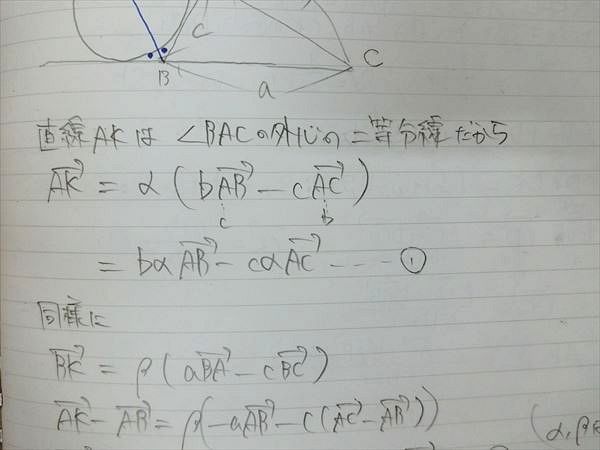 c
B
C
a
直線AKは ∠BACの外心の二等分線だから
\overrightarrow{AK} = α(b\overrightarrow{AB} - c\overrightarrow{AC})
c b
= bα\overrightarrow{AB} - cα\overrightarrow{AC} ---- ①
同様に
\overrightarrow{BK} = β(a\overrightarrow{BA} - c\overrightarrow{BC})
\overrightarrow{AK} - \overrightarrow{AB} = β(-a\overrightarrow{AB} - c(\overrightarrow{AC} - \overrightarrow{AB}))
(α, β